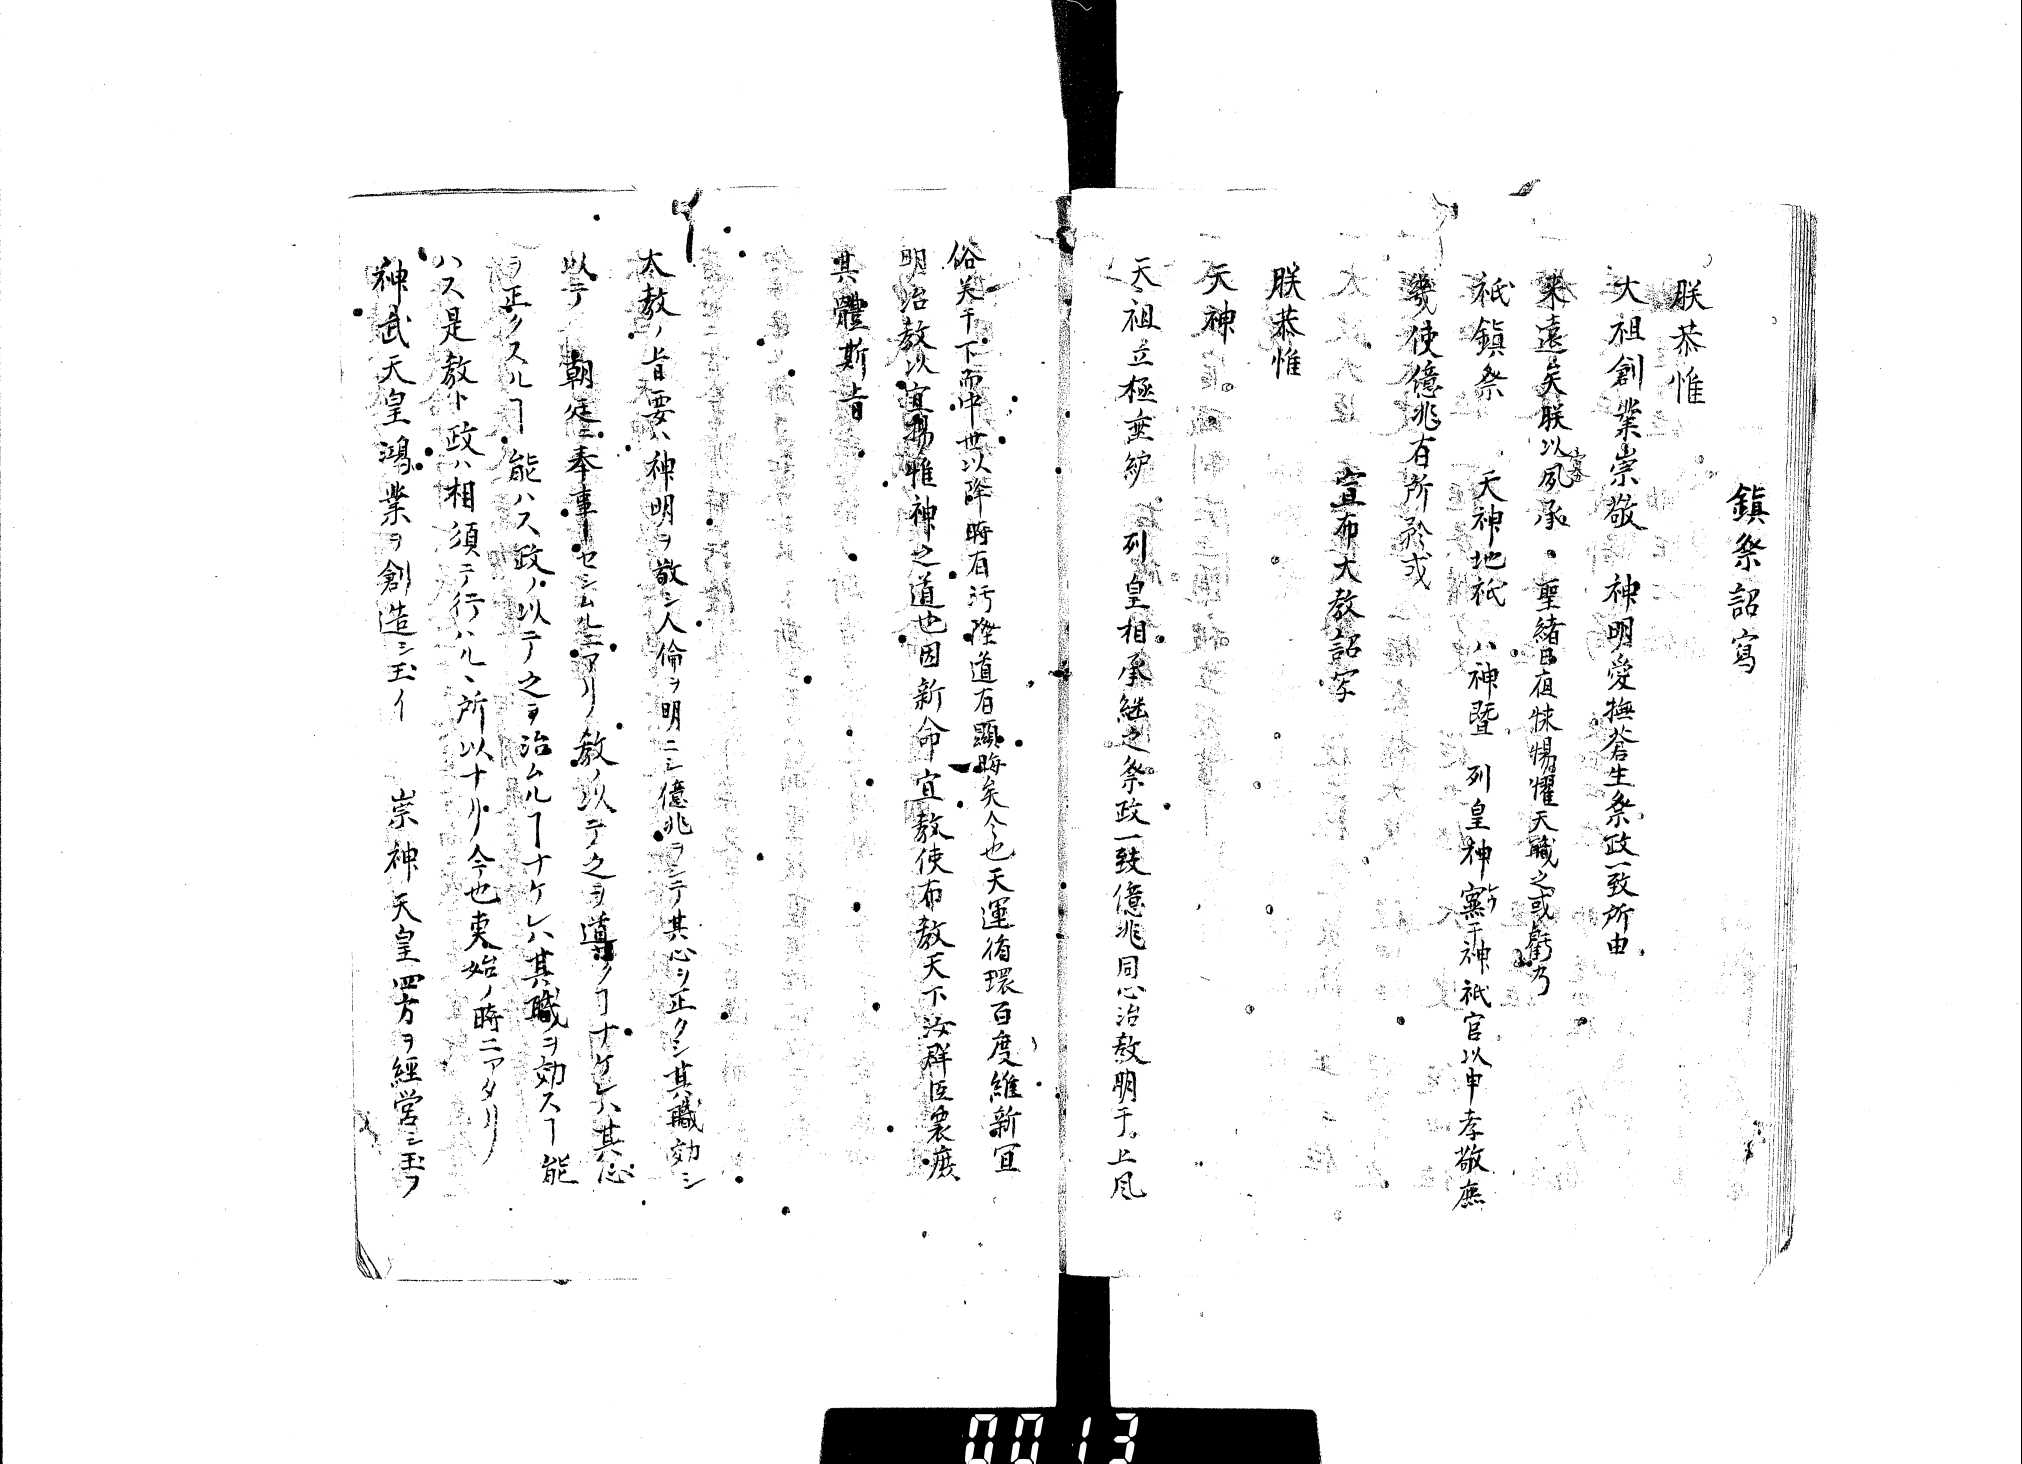 鎮祭詔寫
朕恭惟
大祖創業崇敬　神明愛撫蒼生祭政一致所由
来遠矣朕以寡夙承　聖緒日夜怵惕懼天職之或虧乃
祇鎮祭　天神地祇　八神曁　列皇神靈于神祇官以申孝敬庶
幾使億兆有所矜或
宣布大教詔写
朕恭惟
天神
天祖立極垂統　列皇相承継之祭政一致億兆同心治教明于上風
俗美于下而中世以降時有汚隆道有顯晦矣今也天運循環百度維新宜
明治教以宣揚惟神之道也因新命宣教使布教天下汝群臣衆庶
其體斯旨
大教ノ旨要ハ神明ヲ敬シ人倫ヲ明ニシ億兆ヲシテ其心ヲ正クシ其職効シ
以テ　朝廷ニ奉事セシムルニアリ教ノ以テ之ヲ道クヿナケレハ其心
ヲ正クスルヿ能ハス政ノ以テ之ヲ治ムルヿナケレハ其職ヲ効スヿ能
ハス是教ト政ハ相須テ行ハルヽ所以ナリ今也更始ノ時ニアタリ
神武天皇鴻業ヲ創造シ玉イ　崇神天皇四方ヲ經営シ玉フ
0013